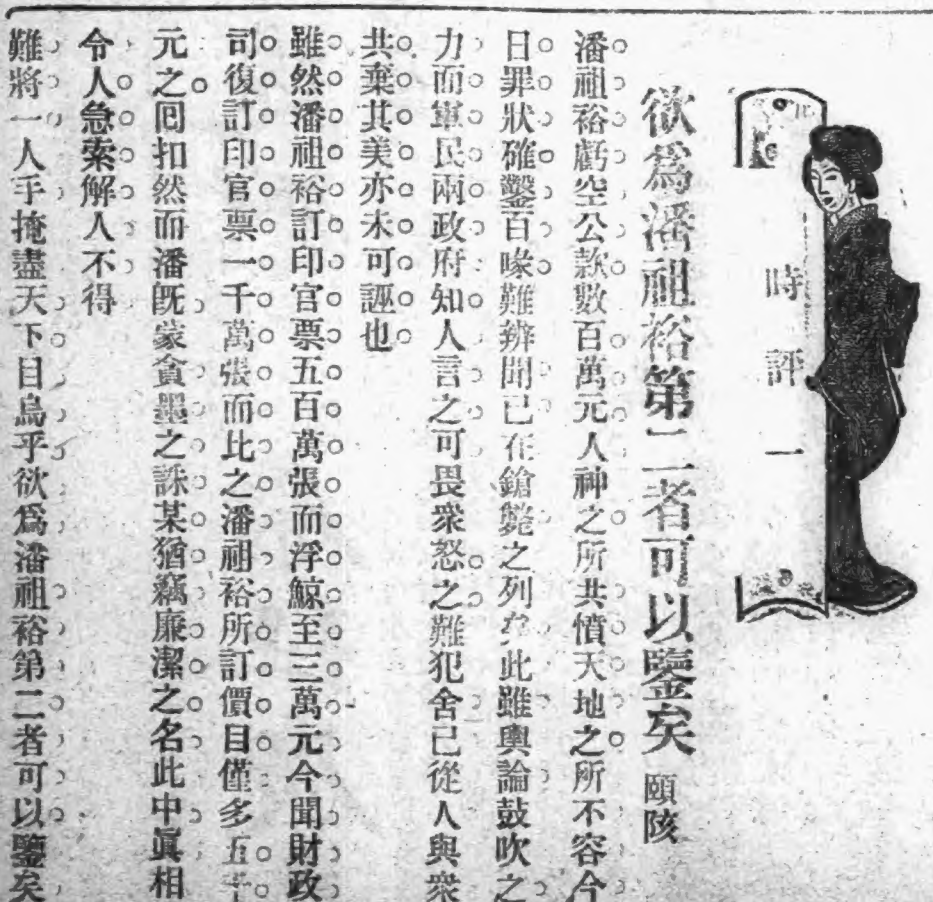 時評一
欲爲潘祖裕第二者可以鑒矣 頤陔
潘祖裕虧空公款數百萬元人神之所共憤天地之所不容今
日罪狀確鑿百喙難辨聞已在鎗斃之列矣此雖輿論鼓吹之
力而軍民兩政府知人言之可畏衆怒之難犯舍己從人與衆
共棄其美亦未可誣也
雖然潘祖裕訂印官票五百萬張而浮鯨至三萬元今聞財政
司復訂印官票一千萬張而比之潘祖裕所訂價目僅多五千
元之囘扣然而潘旣蒙貪墨之誅某猶竊廉潔之名此中眞相
令人急索解人不得
難將一人手掩盡天下目烏乎欲爲潘祖裕第二者可以鑒矣